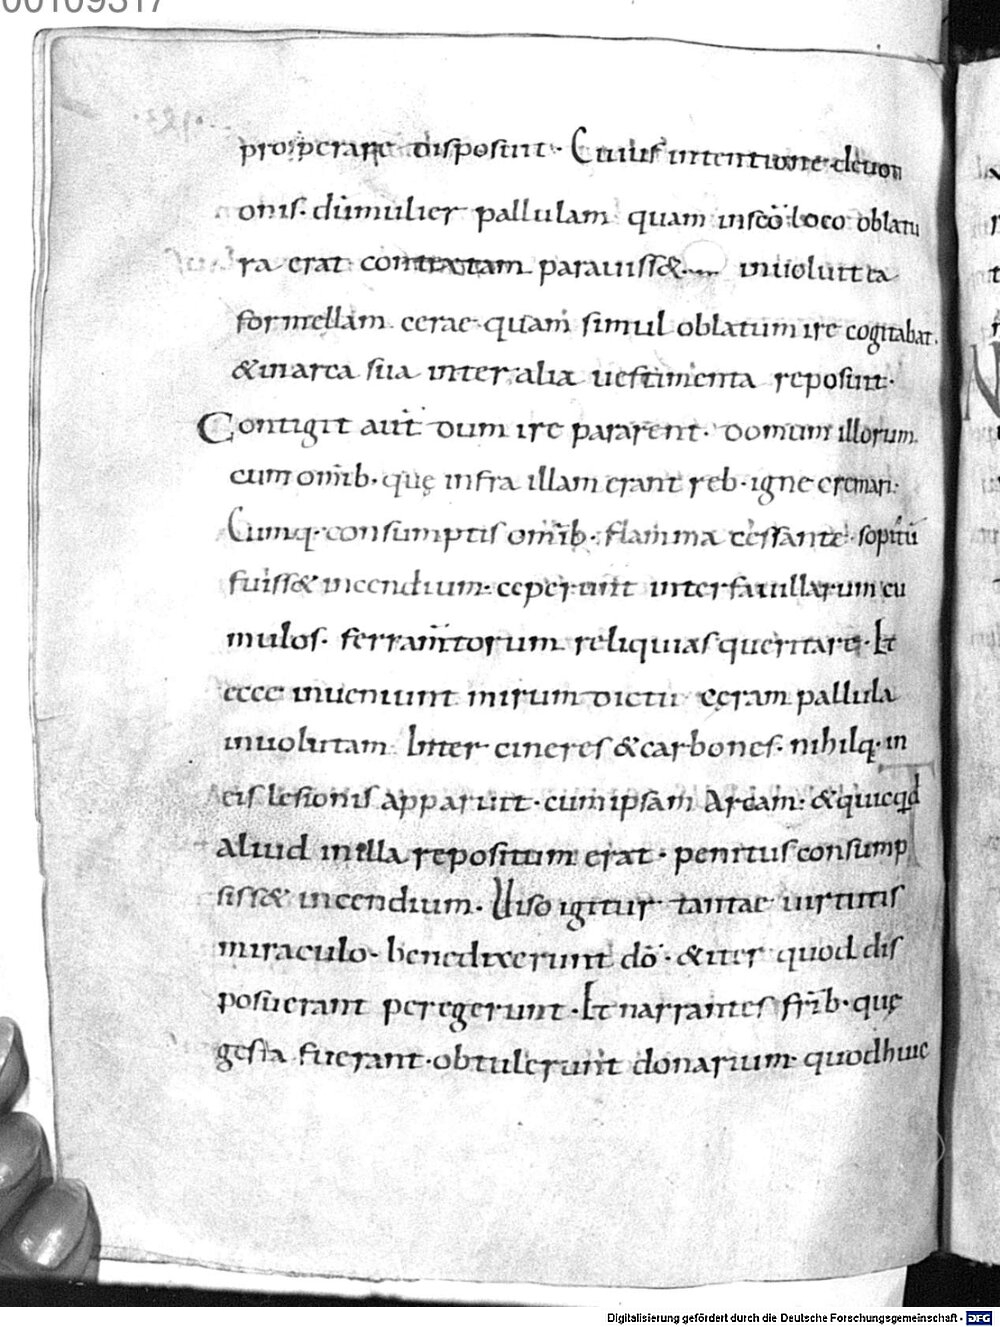 00109317
prosperare disposuit. Cuius intentione deuoti
onis. dū mulier pallulam quam in scō loco oblatu
ra erat contextam parauiss&. inuoluit ea
formellam cerae quam simul oblatum ire cogitabat.
& in arca sua inter alia uestimenta reposuit.
Contigit aūt dum ire pararent. domum illorum
cum om̄ib. quę infra illam erant reb. igne cremari.
Cumq. consumptis om̄ib. flamma cessante. sopitū
fuiss& incendium. ceperunt inter fauillarum cu
mulos. ferram̄torum reliquias queritare. Et
ecce inueniunt mirum dictu cęram pallula
inuolutam. Inter cineres & carbones. nihilq. in
eis lesionis apparuit. cum ipsam Arcam. & quicqd
aliud in illa repositum erat. penitus consump
siss& incendium. Uiso igitur tantae uirtutis
miraculo. benedixerunt dō. & iter quod dis
posuerant peregerunt. Et narrantes fr̄ib. quę
gesta fuerant. obtulerunt donarium. quod huc
Digitalisierung gefördert durch die Deutsche Forschungsgemeinschaft - DFG